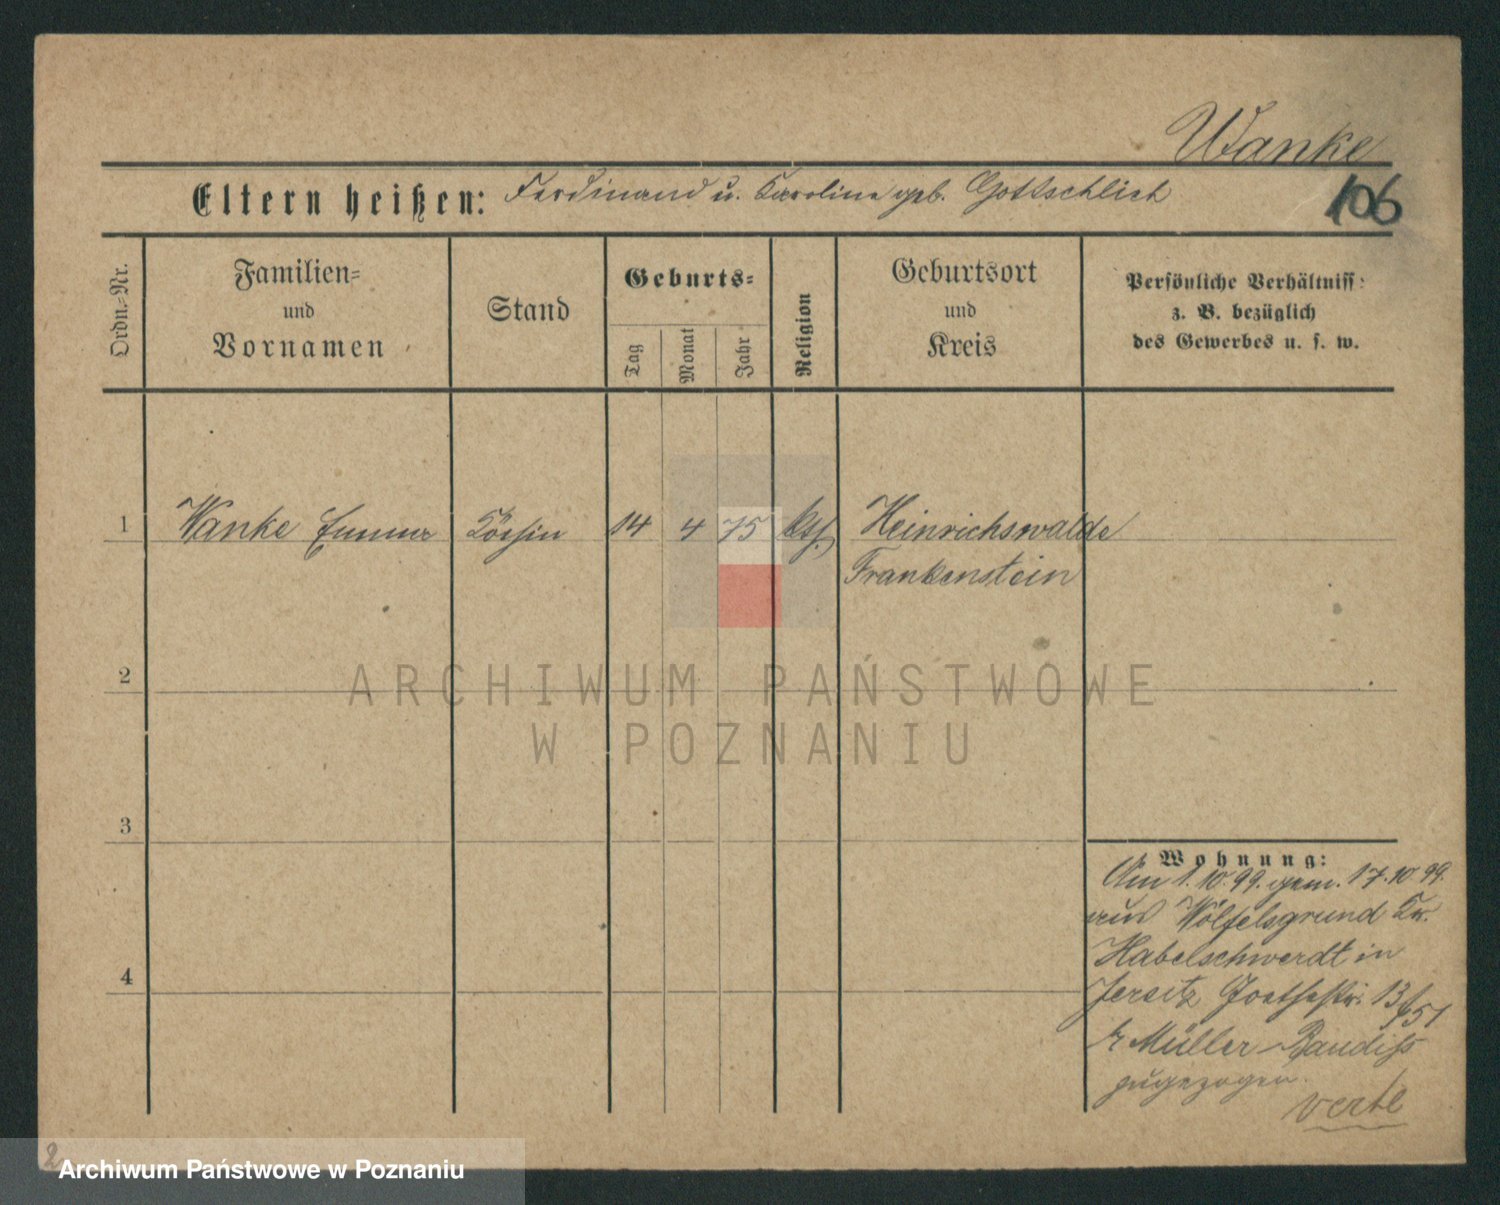 Wanke
Eltern heißen: Ferdinand u. Karoline geb. Gottschlich
106
Ordn.=Nr.
Familien=
und
Vornamen
Stand
Geburts=
Tag
Monat
Jahr
Religion
Geburtsort
und
Kreis
Persönliche Verhältniss:
z. B. bezüglich
des Gewerbes u. s. w.
1 Wanke Emma Köchin 14 4 75 kth. Heinrichswalde
Frankenstein
2
3
4
Wohnung:
Am 1.10.99. gem. 17.10.99.
aus Wölfelsgrund Kr.
Habelschwerdt in
Jersitz Goethestr. 13
b Müller
zugezogen.
verte
ARCHIWUM PAŃSTWOWE
W POZNANIU
2
Archiwum Państwowe w Poznaniu